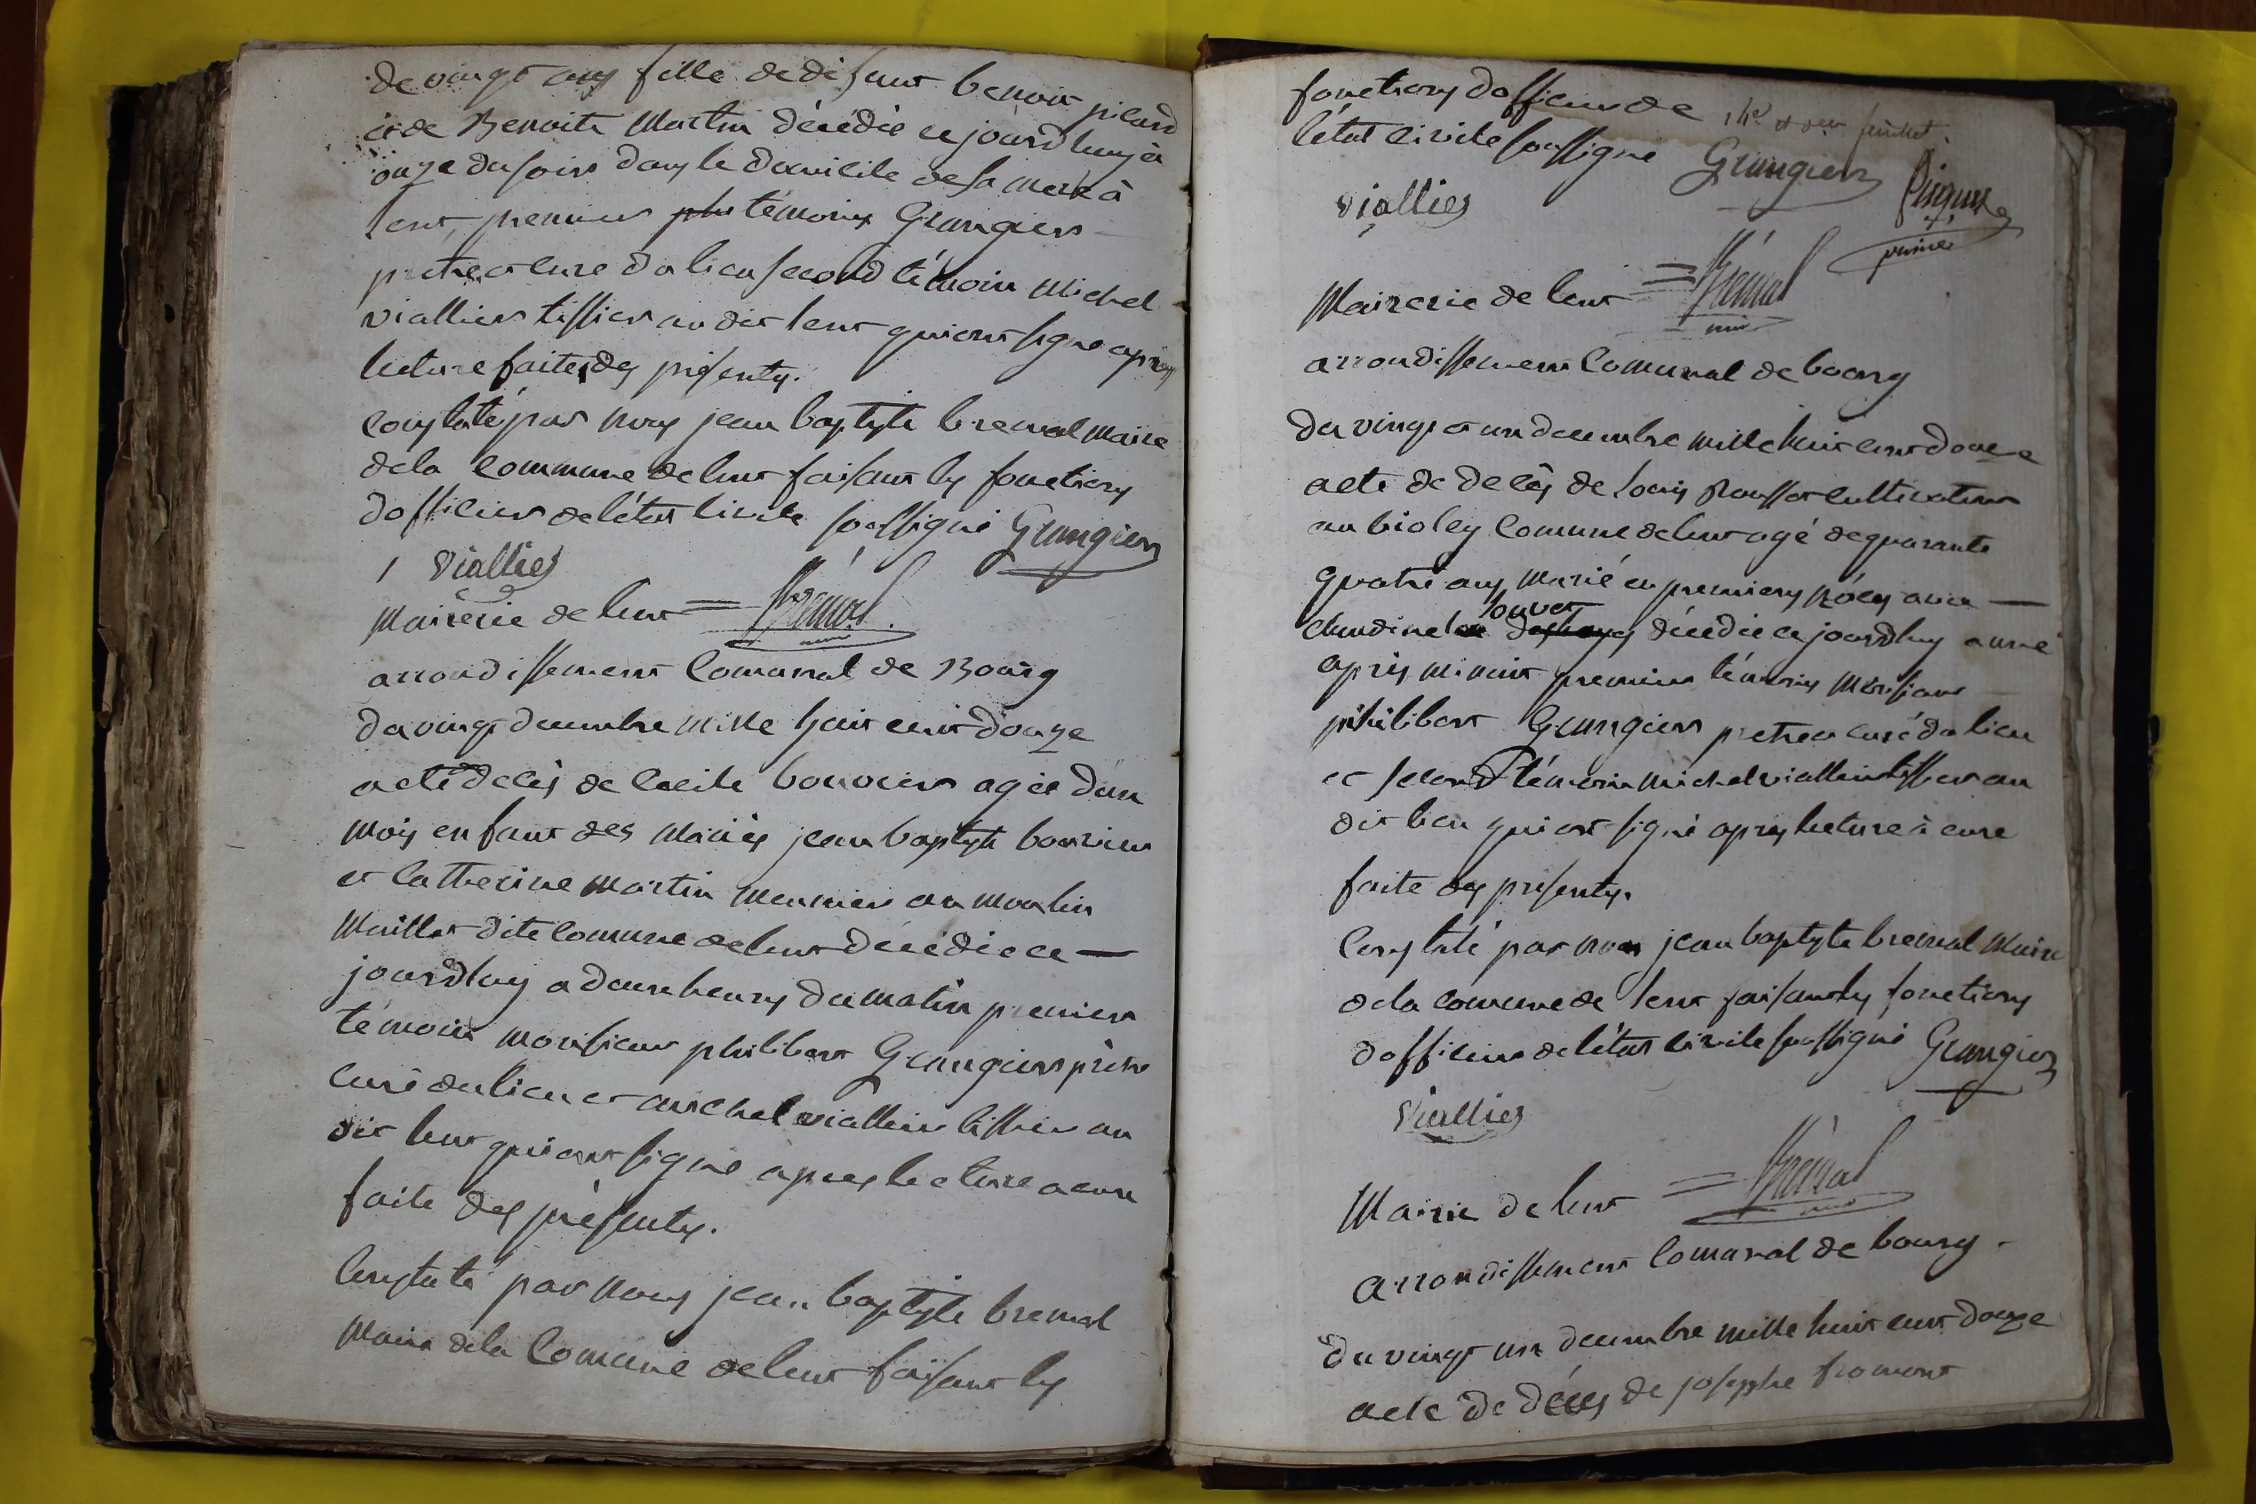 de vingt ans fille de défunt benoit picard
et de Benoite Martin décédée ce jourdhuy à
onze du soir dans le domicile de sa mere à
lent, premier témoins Grangier
pretre et curé du lieu second témoin Michel
viallier tissier au dit lent qui ont signé après
lecture faite des présentes.
constaté par nous jean baptiste bremal maire
dela commune de lent faisant les fonctions
dofficier de létat civile soussigné Grangier
Viallier
Mairerie de lent = Brémal
arrondissement Comunal de Bourg
du vingt decembre mille huit cent douze
acte décès de Cecile bouvier agée dun
mois enfant des mariés jean baptiste bouvier
et Catherine Martin meunier au moulin
Maillet dite Comune de lent décédée ce
jourdhuy a deux heures du matin premier
témoin monsieur philibert Grangier prétre
curé du lieu et michel viallier tissier au
dit lent qui ont signé apres lecture a eux
faite des présentes.
Constaté par nous jean baptiste bremal
Maire dela Comune de lent faisant les
fonctions dofficier de
létat civile soussigné Grangier
Viallier
Mairerie de lent = Brémal
arrondissement Comunal de bourg
du vingt et un decembre mille huit cent douze
acte de decès de louis Rousset cultivateur
au bioley Comune de lent agé de quarante
quatre ans marié en premiers nóces avec
louvet
claudine décédée ce jourdhuy a une
après minuit premier témoins monsieur
philibert Grangier pretre curé du lieu
et second témoin michel viallier tissier au
dit lieu qui ont signé apres lecture à eux
faite des présentes.
Constaté par nous jean baptiste bremal Maire
dela comune de lent faisant les fonctions
dofficier de létat civile soussigné Grangier
Viallier
Mairie de lent = Brémal
arrondissement Comunal de bourg
du vingt un decembre mille huit cent douze
acte de décès de josepte fromont